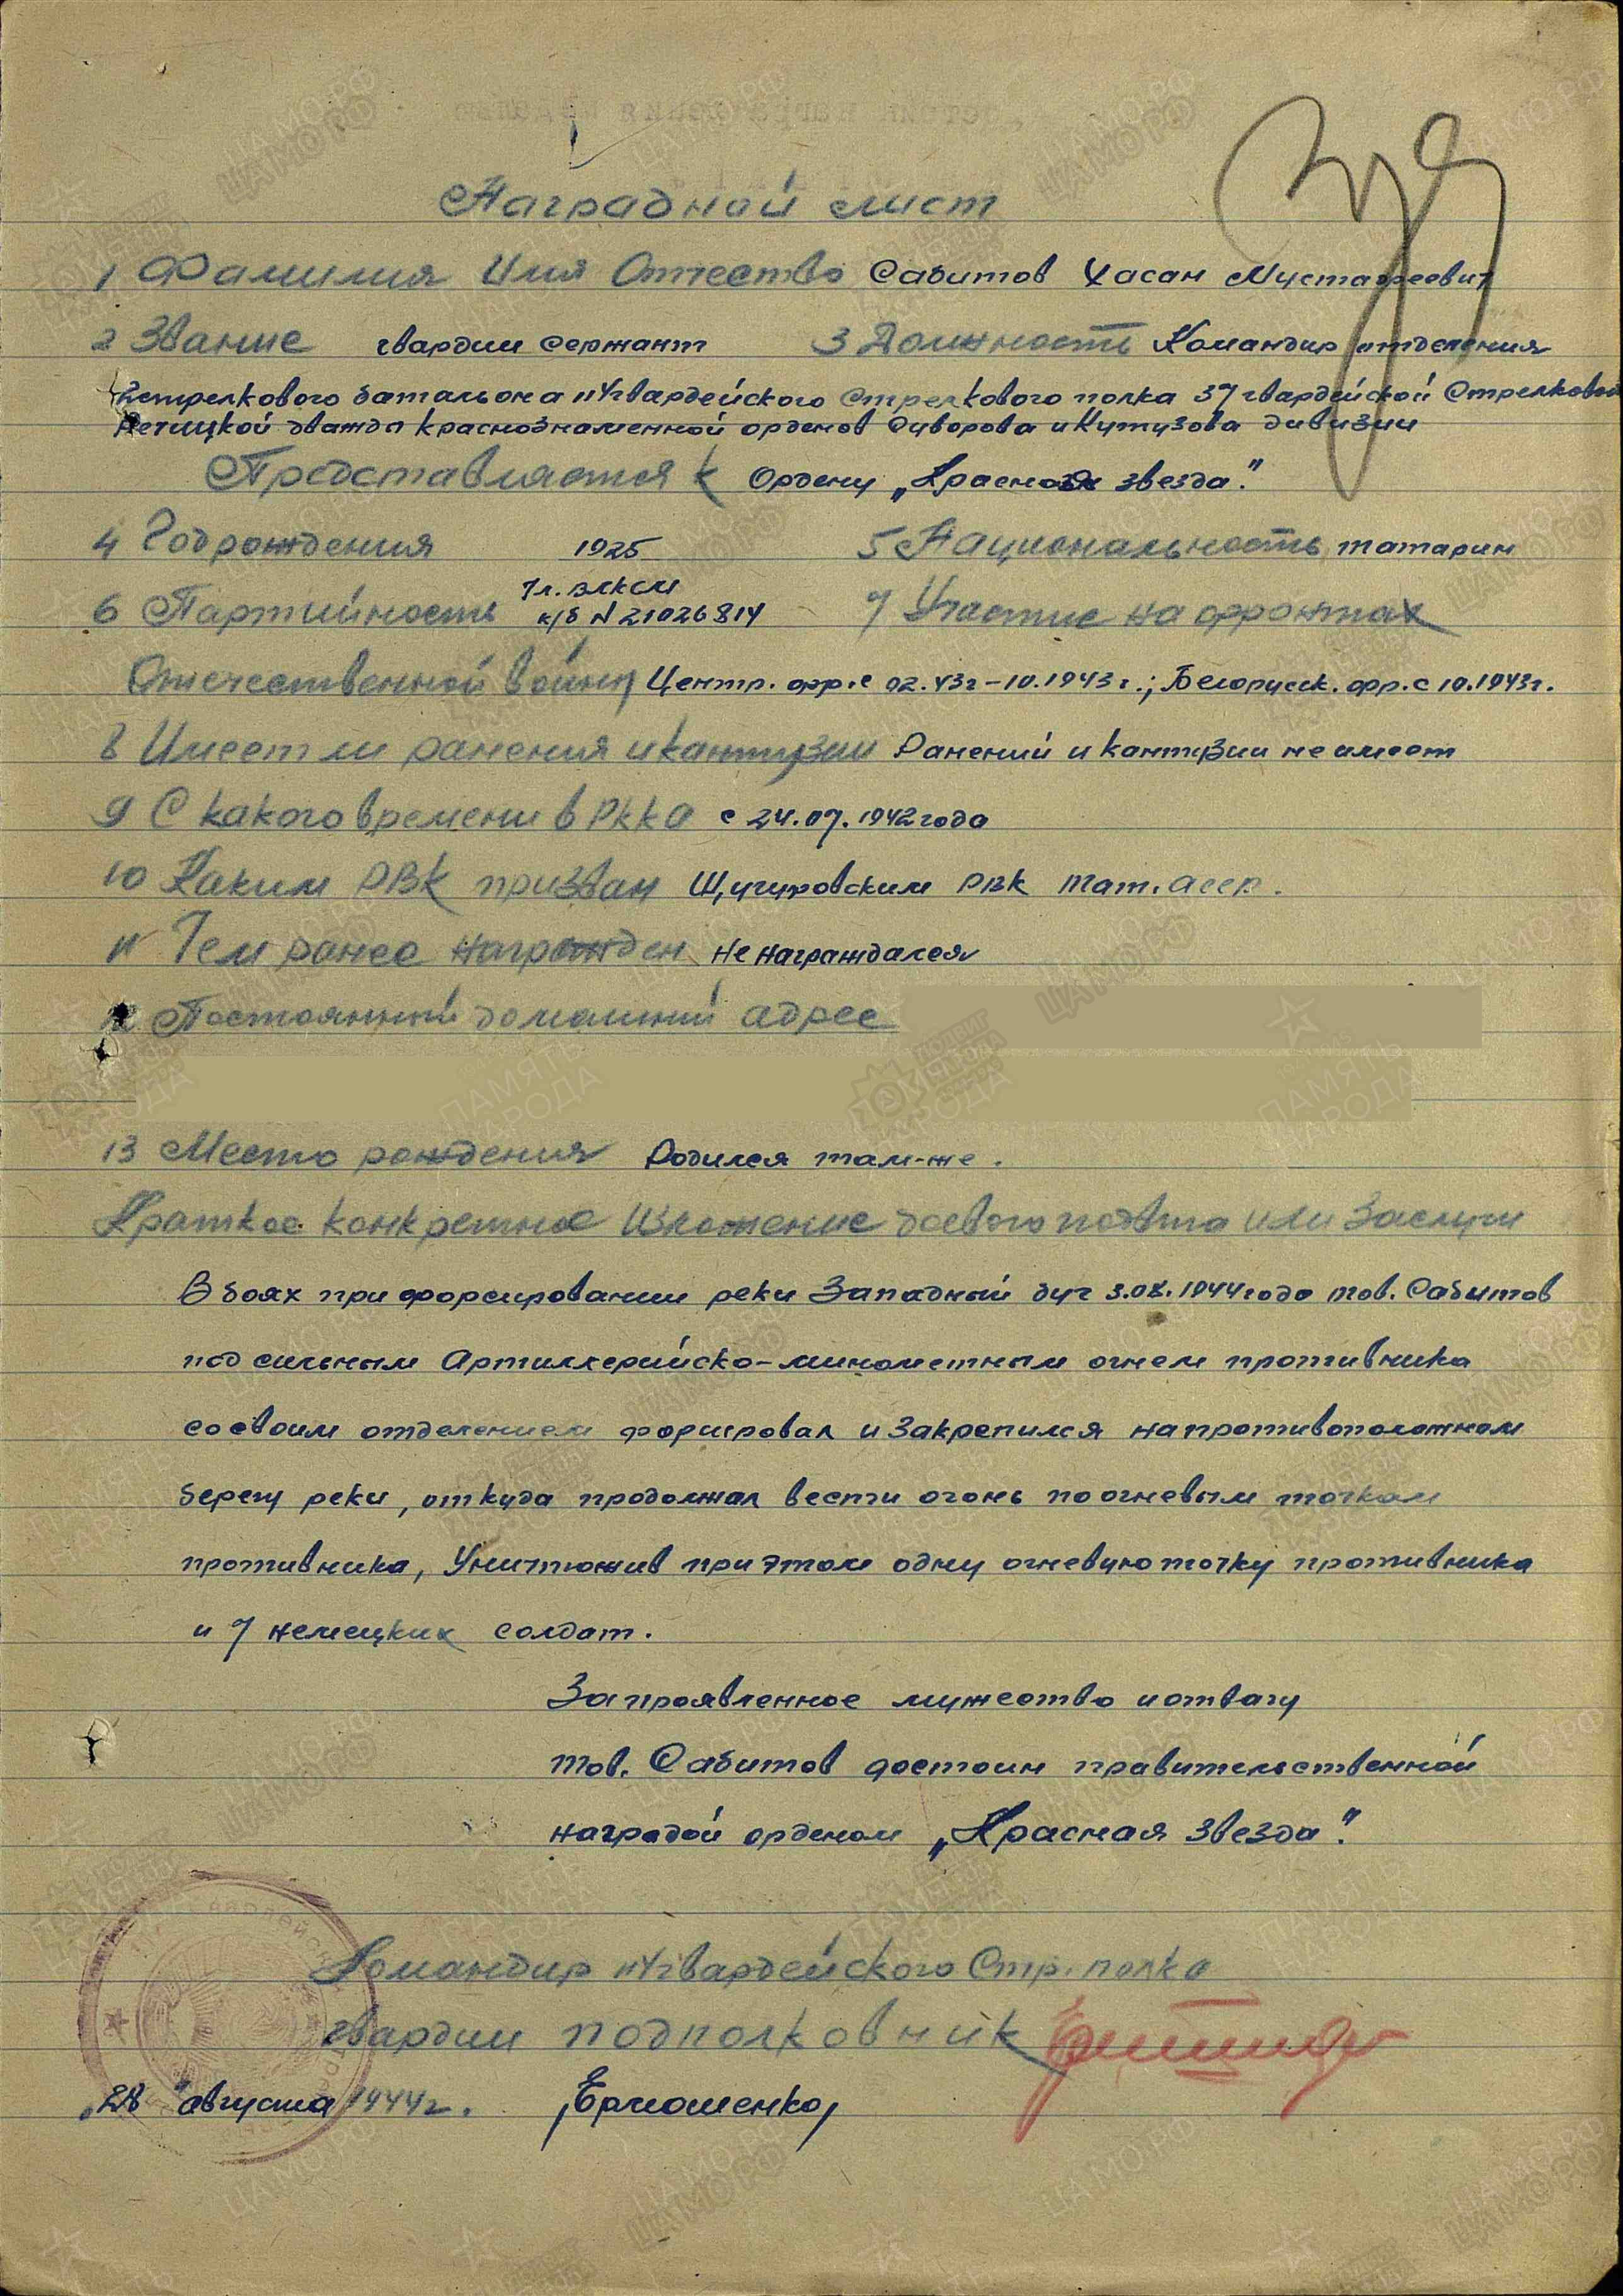 Наградной лист
1 Фамилия Имя Отчество Сабитов Хасан Мустафеевич
2 Звание гвардии сержант 3 Должность Командир отделения
стрелкового батальона 114 гвардейского Стрелкового полка 37 гвардейской Стрелковой
Речицкой дважды краснознаменной орденов Суворова и Кутузова дивизии
Представляется к Ордену „Красная звезда".
4 Год рождения 1925 5 Национальность татарин
6 Партийность чл. ВЛКСМ к/б N 21026814 7 Участие на фронтах
Отечественной войны Центр. фр. с 02.43г – 10.1943г.; Белорусск. фр. с 10.1943г.
8 Имеет ли ранения и кантузии Ранений и кантузии не имеет
9 С какого времени в РККА с 24.07.1942 года
10 Каким РВК призван Шугуровским РВК Тат. АССР.
11 Чем ранее награжден не награждался
12 Постоянный домашний адрес
13 Место рождения Родился там-же.
Краткое конкретное изложение боевого подвига или заслуги
В боях при форсировании реки Западный буг 3.08.1944 года тов. Сабитов
под сильным Артиллерийско-минометным огнем противника
со своим отделением форсировал и закрепился на противоположном
берегу реки, откуда продолжал вести огонь по огневым точкам
противника, Уничтожив при этом одну огневую точку противника
и 7 немецких солдат.
За проявленное мужество и отвагу
тов. Сабитов достоин правительственной
наградой орденом „Красная звезда".
Командир 114 гвардейского Стр. полка
гвардии подполковник
„28" августа 1944 г. /Ермошенко/
ЦАМО.РФ
ПАМЯТЬ НАРОДА